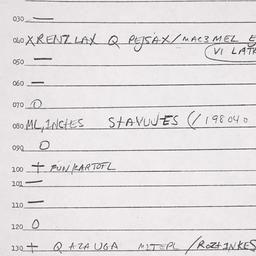 030 —
040 XRENZLAX Q PEJSAX/MAC3MEL
VI LATR
050 —
060 —
070 O
080 ML,INCHES STAVUJES (/198040
090 O
100 + FUN/KARTOFL
101 —
110 —
120 O
130 + Q AZAUGA MITEPL /ROZAINKES